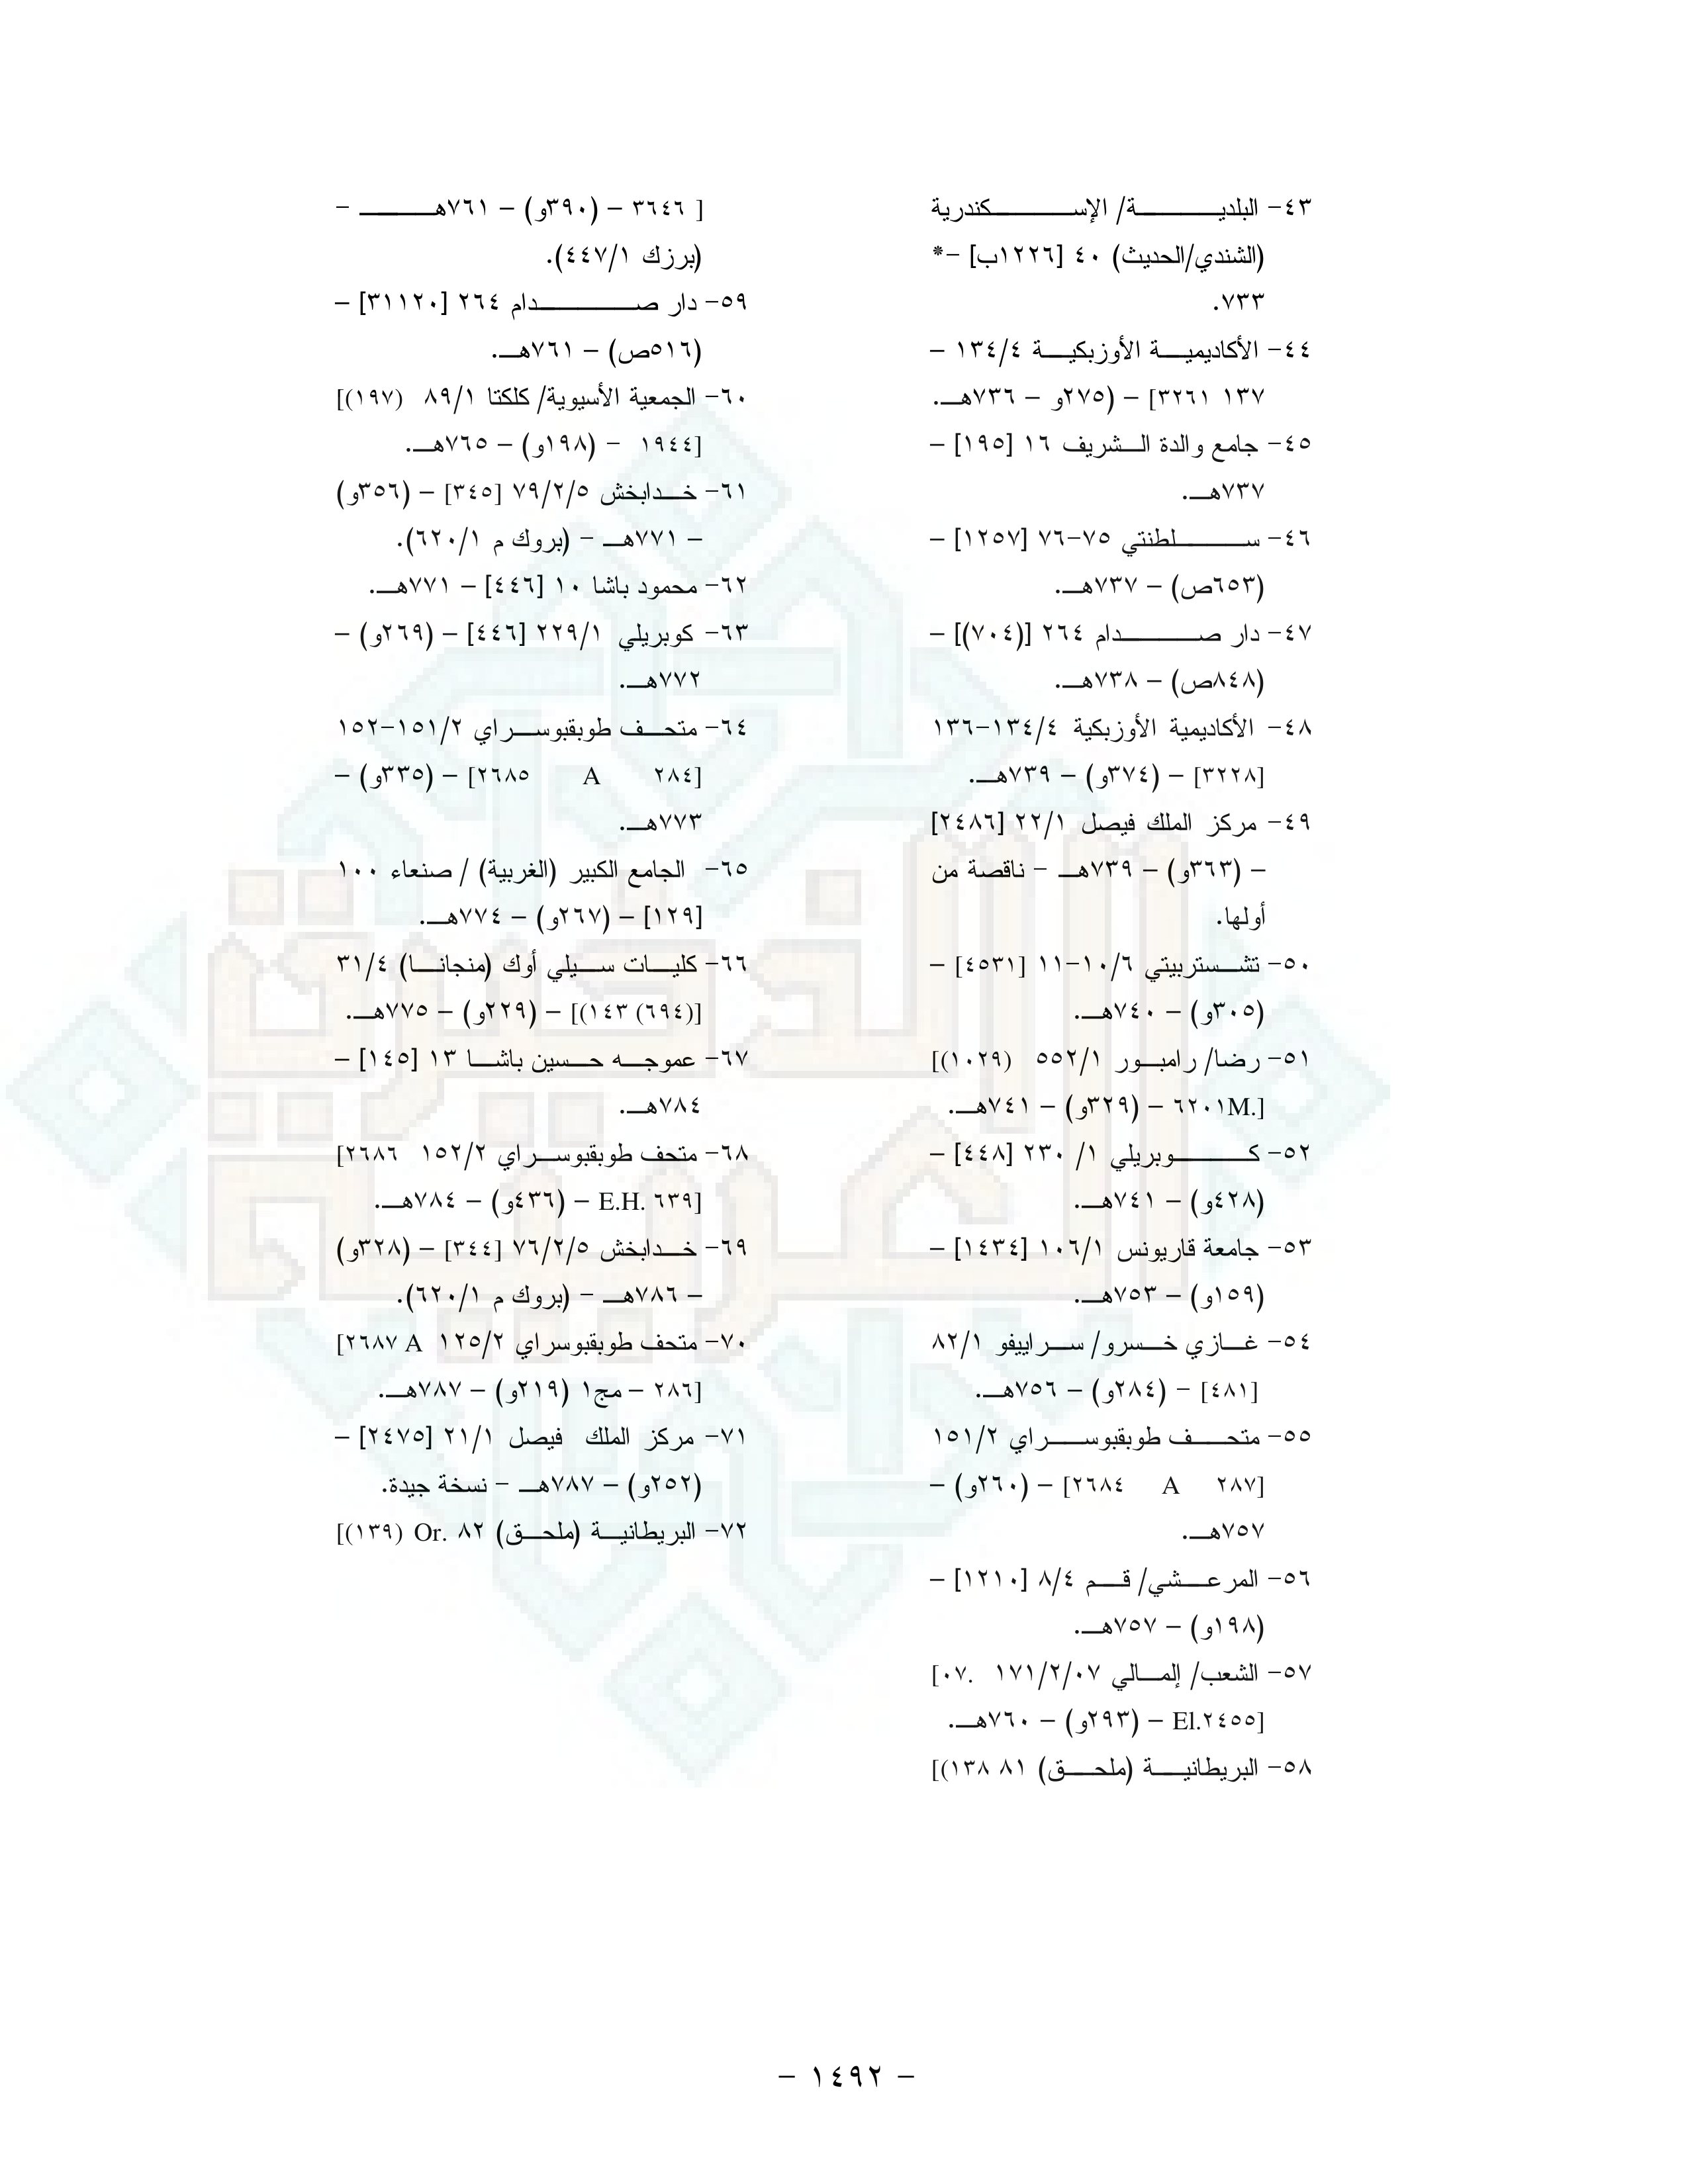 ٤٣- البلدية/ الإسكندرية
(الشندي/الحديث) ٤٠ [١٢٢٦ب] -*
٧٣٣.
٤٤- الأكاديمية الأوزبكية ١٣٤/٤ –
١٣٧ [٣٢٦١ ١٣٧ – (٢٧٥و – ٧٣٦هـ.
٤٥- جامع والدة الشريف ١٦ [١٩٥] –
٧٣٧هـ.
٤٦- سلطنتي ٧٥-٧٦ [١٢٥٧] –
(٦٥٣ص) – ٧٣٧هـ.
٤٧- دار صدام ٢٦٤ [(٧٠٤)] –
(٨٤٨ص) – ٧٣٨هـ.
٤٨- الأكاديمية الأوزبكية ١٣٤/٤-١٣٦
[٣٢٢٨] – (٣٧٤و) – ٧٣٩هـ.
٤٩- مركز الملك فيصل ٢٢/١ [٢٤٨٦]
– (٣٦٣و) – ٧٣٩هـ - ناقصة من
أولها.
٥٠- تشستربيتي ١٠/٦-١١ [٤٥٣١] –
(٣٠٥و) – ٧٤٠هـ.
٥١- رضا/ رامبور ٥٥٢/١ [(١٠٢٩)
M.٦٢٠١] – (٣٢٩و) – ٧٤١هـ.
٥٢- كوبريلي ١/ ٢٣٠ [٤٤٨] –
(٤٢٨و) – ٧٤١هـ.
٥٣- جامعة قاريونس ١٠٦/١ [١٤٣٤] –
(١٥٩و) – ٧٥٣هـ.
٥٤- غازي خسرو/ سراييفو ٨٢/١
[٤٨١] – (٢٨٤و) – ٧٥٦هـ.
٥٥- متحف طوبقبوسراي ١٥١/٢
[٢٦٨٤ A ٢٨٧] – (٢٦٠و) –
٧٥٧هـ.
٥٦- المرعشي/ قم ٨/٤ [١٢١٠] –
(١٩٨و) – ٧٥٧هـ.
٥٧- الشعب/ إلمالي ١٧١/٢/٠٧ [٠٧.
El.٢٤٥٥] – (٢٩٣و) – ٧٦٠هـ.
٥٨- البريطانية (ملحق) ٨١ [(١٣٨
[ ٣٦٤٦ – (٣٩٠و) – ٧٦١هـ -
(برزك ٤٤٧/١).
٥٩- دار صدام ٢٦٤ [٣١١٢٠] –
(٥١٦ص) – ٧٦١هـ.
٦٠- الجمعية الأسيوية/ كلكتا ٨٩/١ [(١٩٧)
١٩٤٤] – (١٩٨و) – ٧٦٥هـ.
٦١- خدابخش ٧٩/٢/٥ [٣٤٥] – (٣٥٦و)
– ٧٧١هـ - (بروك م ٦٢٠/١).
٦٢- محمود باشا ١٠ [٤٤٦] – ٧٧١هـ.
٦٣- كوبريلي ٢٢٩/١ [٤٤٦] – (٢٦٩و) –
٧٧٢هـ.
٦٤- متحف طوبقبوسراي ١٥١/٢-١٥٢
[٢٦٨٥ A ٢٨٤] – (٣٣٥و) –
٧٧٣هـ.
٦٥- الجامع الكبير (الغربية) / صنعاء ١٠٠
[١٢٩] – (٢٦٧و) – ٧٧٤هـ.
٦٦- كليات سيلي أوك (منجانا) ٣١/٤
[(٦٩٤) ١٤٣)] – (٢٢٩و) – ٧٧٥هـ.
٦٧- عموجه حسين باشا ١٣ [١٤٥] –
٧٨٤هـ.
٦٨- متحف طوبقبوسراي ١٥٢/٢ [٢٦٨٦
E.H. ٦٣٩] – (٤٣٦و) – ٧٨٤هـ.
٦٩- خدابخش ٧٦/٢/٥ [٣٤٤] – (٣٢٨و)
– ٧٨٦هـ - (بروك م ٦٢٠/١).
٧٠- متحف طوبقبوسراي ١٢٥/٢ [٢٦٨٧ A
٢٨٦] – مج١ (٢١٩و) – ٧٨٧هـ.
٧١- مركز الملك فيصل ٢١/١ [٢٤٧٥] –
(٢٥٢و) – ٧٨٧هـ - نسخة جيدة.
٧٢- البريطانية (ملحق) ٨٢ [(١٣٩) Or.
– ١٤٩٢ –